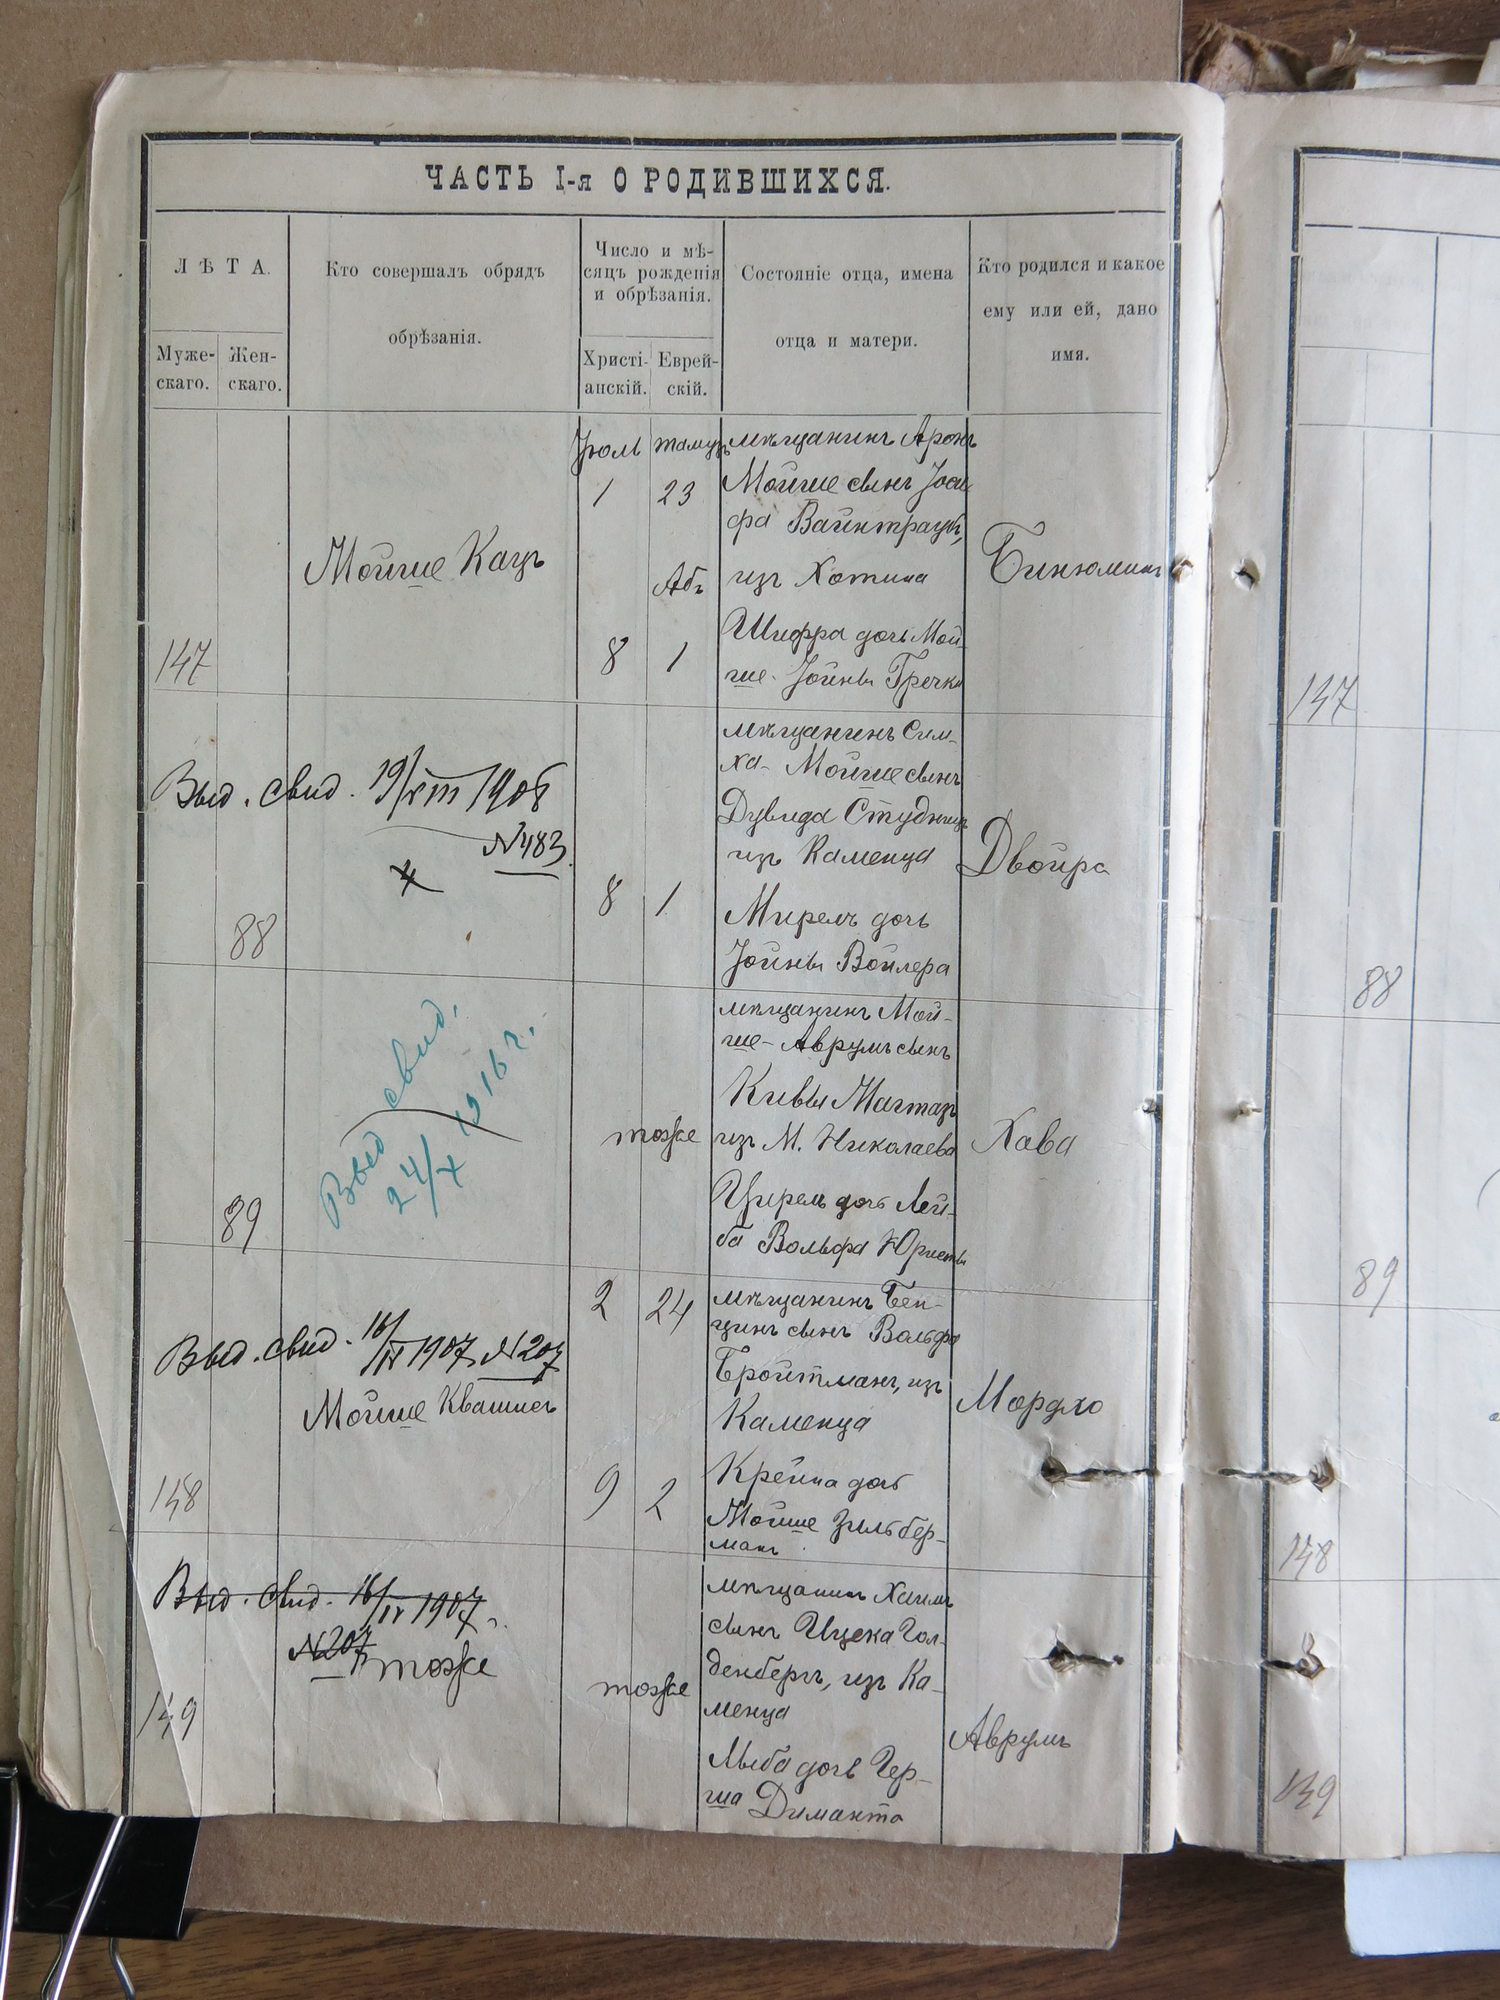 ЧАСТЬ I-я О РОДИВШИХСЯ.
ЛѢТА.
Муже-
скаго.
Жен-
скаго.
Кто совершалъ обрядъ
обрѣзанія.
Число и мѣ-
сяцъ рожденія
и обрѣзанія.
Христі-
анскій.
Еврей-
скій.
Состояніе отца, имена
отца и матери.
Кто родился и какое
ему или ей, дано
имя.
147
Мойше Кацъ
Іюль
1
8
тамузъ
23
Абъ
1
мѣщанинъ Аронъ
Мойше сынъ Іосе
фа Вайнтраубъ,
изъ Хотина
Шифра дочь Мой-
ше- Іойны Гречки
Бинюминъ
88
Выд. свид. 19/VIII 1906
№483.
8
1
мѣщанинъ Сим-
ха- Мойше сынъ
Дувида Студницъ
изъ Каменца
Мирелъ дочь
Іойны Войлера
Двойра
89
Выд свид.
24/X 1916 г.
тоже
мѣщанинъ Мой-
ше- Аврумъ сынъ
Кивы
изъ М. Николаева
Цирель дочь Лей-
ба Вольфа
Хава
148
Выд. свид. 16/IV 1907 №207
Мойше Квашисъ
2
24
9
2
мѣщанинъ Бен-
цинъ сынъ Вольфа
Бройтманъ, изъ
Каменца
Крейна дочь
Мойше Зильбер-
манъ
Мордхо
149
Выд. свид. 16/IV 1907 г.
№207
тоже
тоже
мѣщанинъ Хаимъ
сынъ Ицека Гол-
денбергъ, изъ Ка-
менца
Лыба дочь Гер-
ша Диманта
Аврумъ
147
88
89
148
149